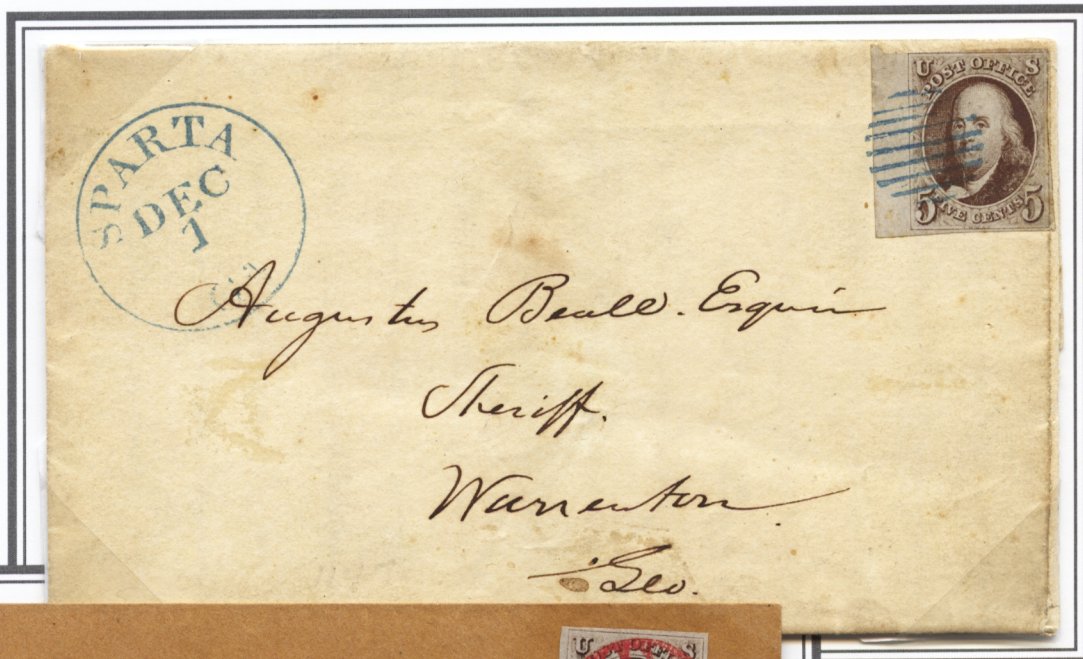 SPARTA
DEC
1
Ga
U S
POST OFFICE
5 FIVE CENTS 5
Augustus Beall. Esquire
Sheriff.
Warrenton.
Geo.
U S
POST OFFICE